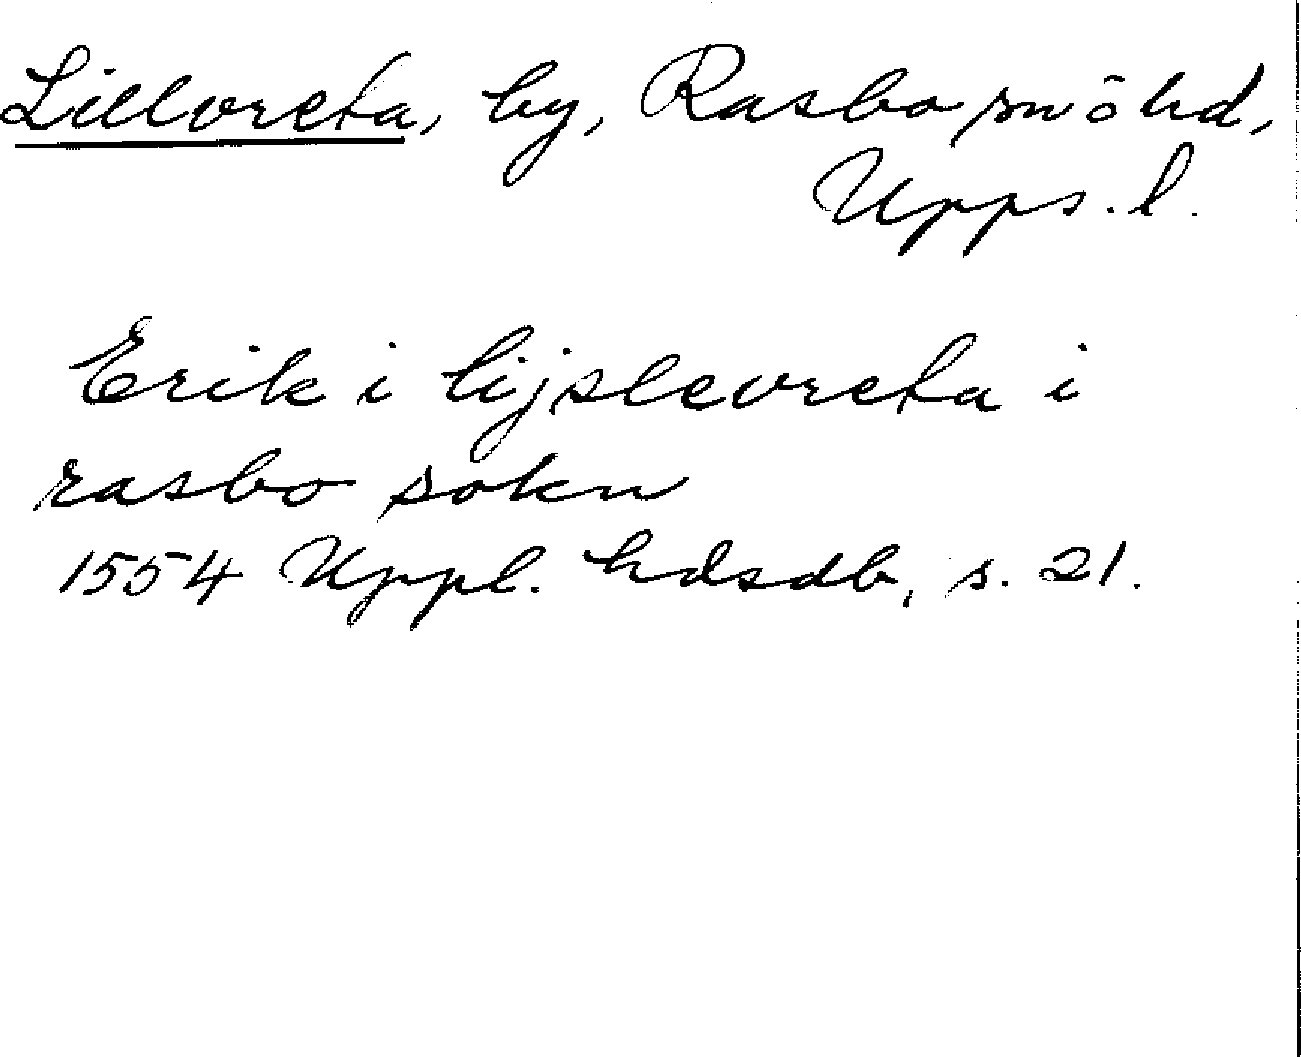 Lillvreta, by, Rasbo sn ö hd,
Upps. l.
Erik i lijslevreta i
rasbo sokn
1554 Uppl. hdsdb, s. 21.